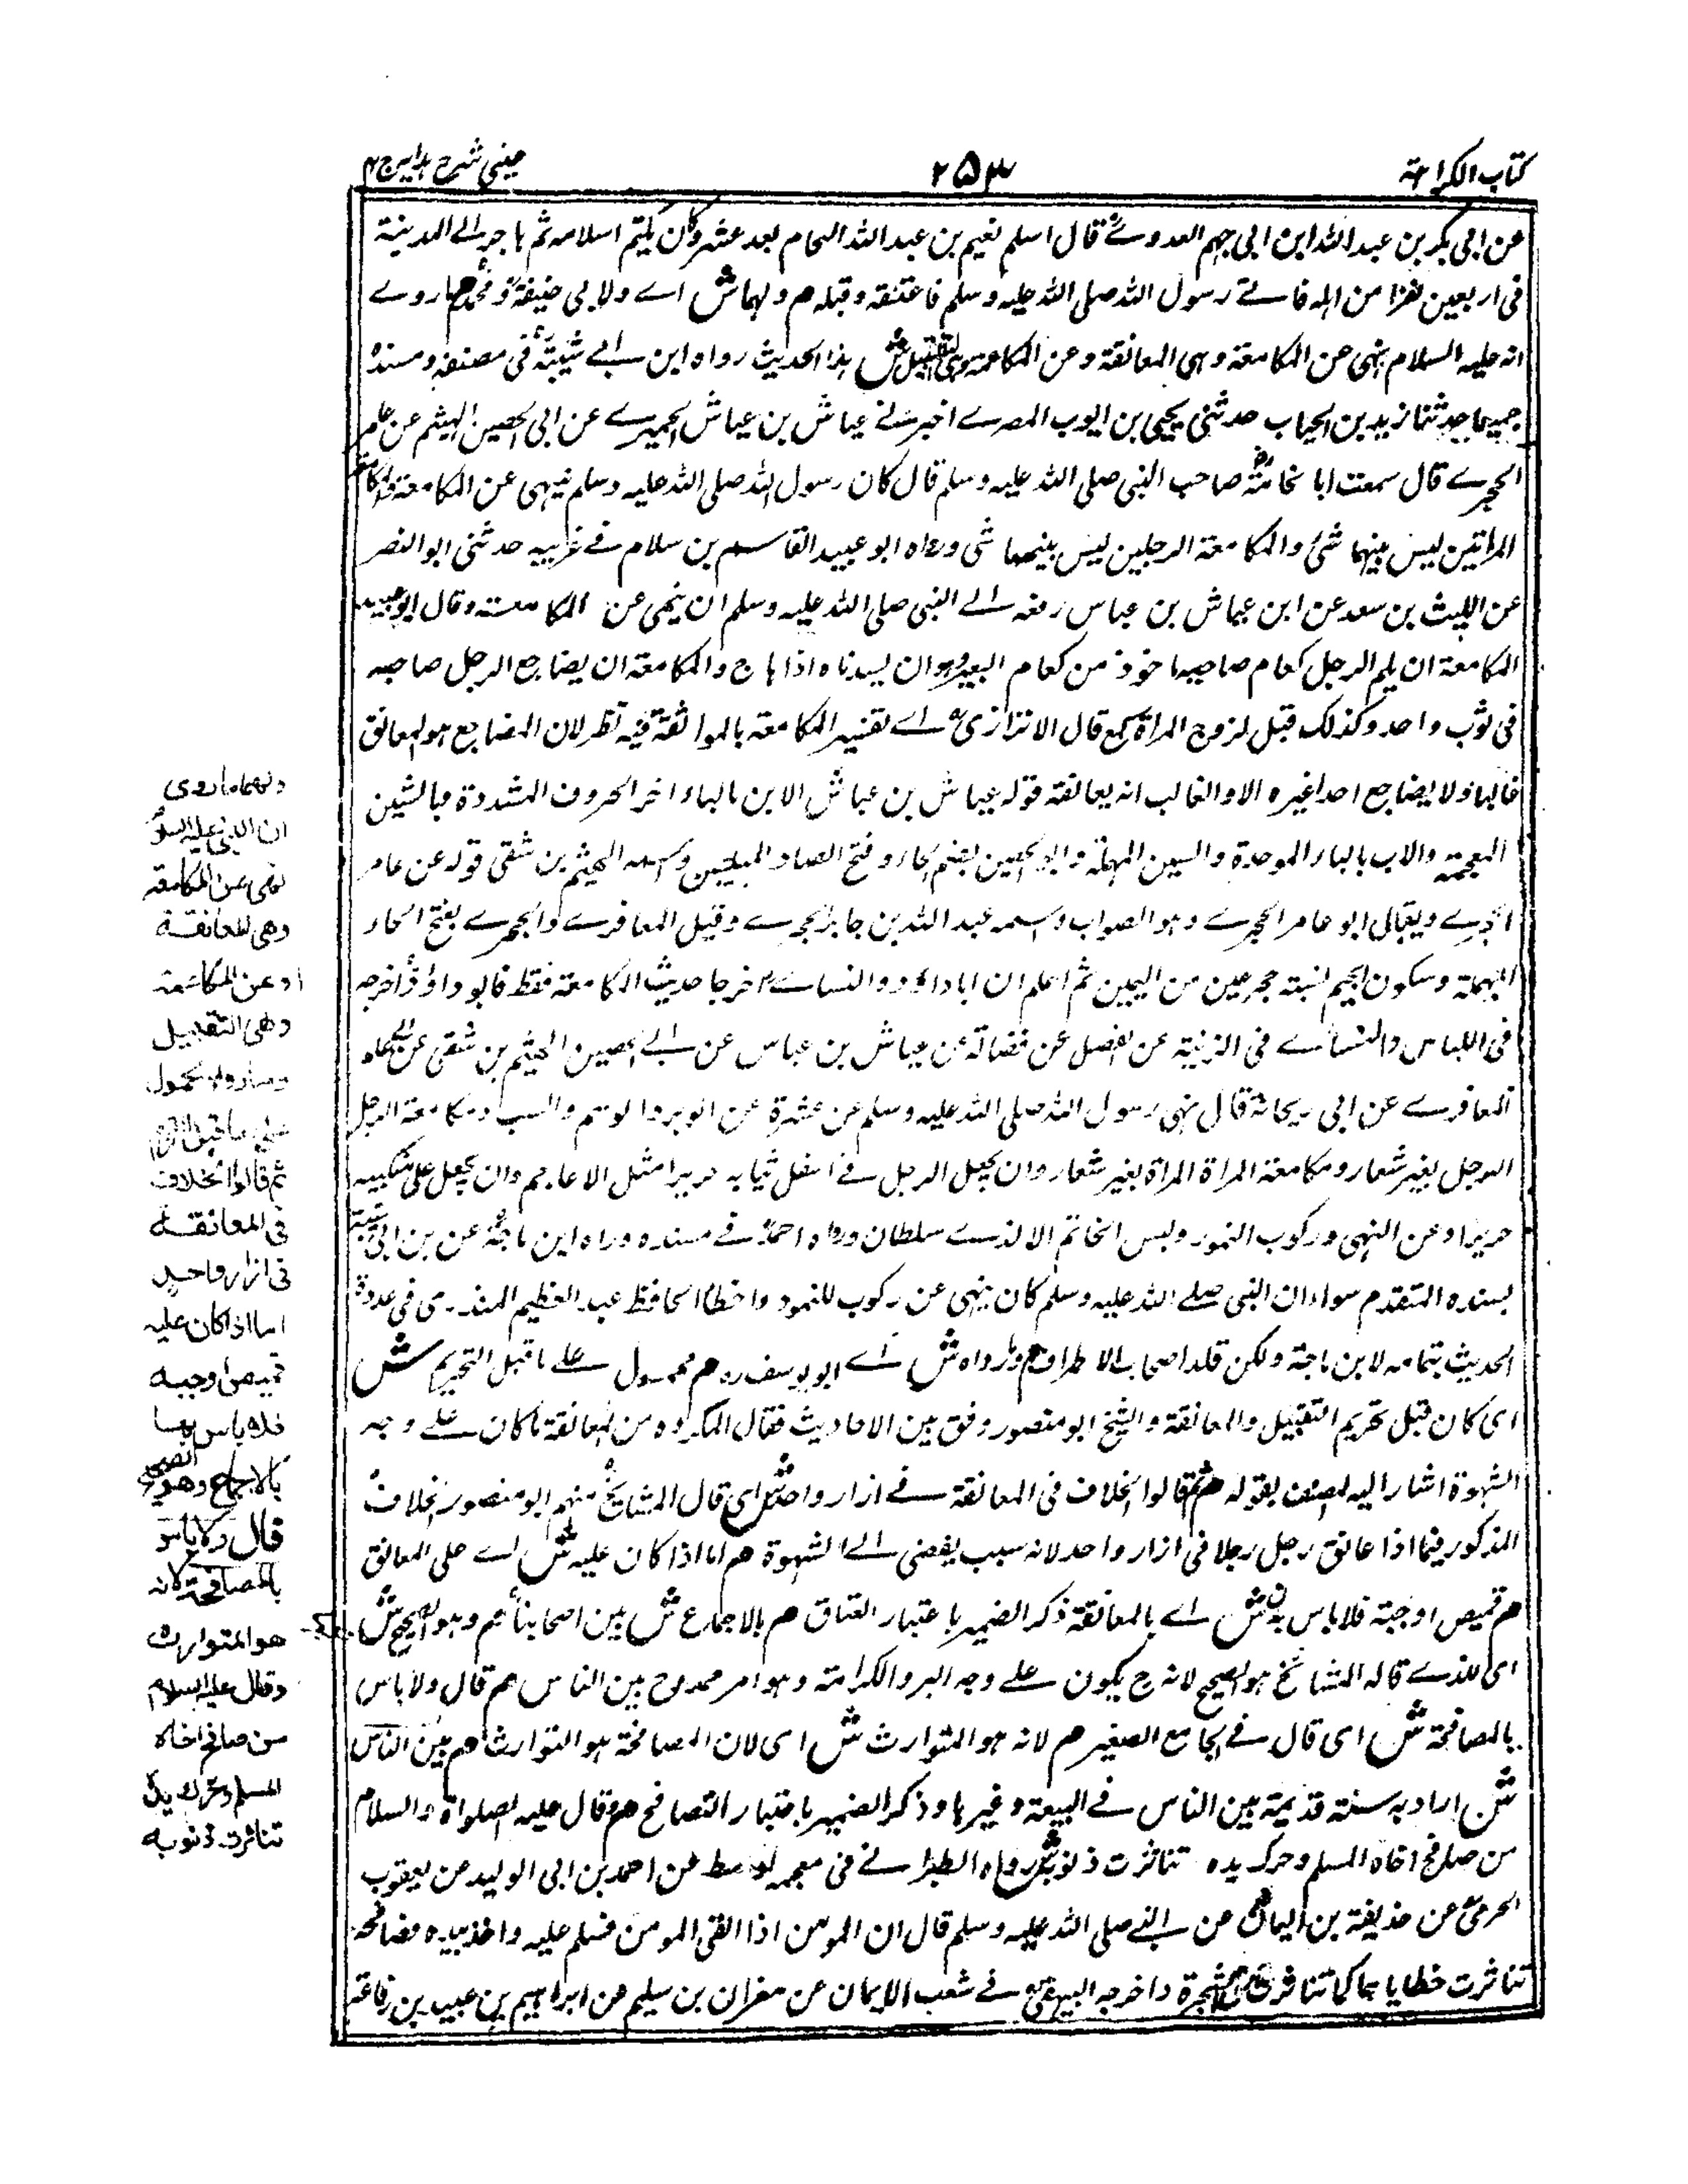 كتاب الكراهة
٢٥٣
عيني شرح هدايه ج ٤
عن ابي بكر بن عبد الله ابن ابي جهم العدوي قال اسلم نعيم بن عبد الله النحام بعد عشر وكان يكتم اسلامه ثم هاجر الى المدينة
في اربعين نفرا من اهله فاتى رسول الله صلى الله عليه وسلم فاعتنقه وقبله م ولهما ش اے ولابي حنيفة و محمد م ما روے
انه عليه السلام نهى عن المكامعة وهى المعانقة وعن المكاعمة وهى التقبيل ش هذا الحديث رواه ابن ابے شيبة في مصنفه ومسنده
جميعا حدثنا زيد بن الحباب حدثنى يحيى بن ايوب المصرے اخبرنے عياش بن عياش الحميرے عن ابى الحصين الهيثم عن عامر
الحجرے قال سمعت ابا صاحب النبى صلى الله عليه وسلم قال كان رسول الله صلى الله عليه وسلم ينهى عن المكامعة والمكاعمة
المراتين ليس بينهما شئ والمكامعة الرجلين ليس بينهما شى ورواه ابو عبيد القاسم بن سلام فے غريبه حدثنى ابو النضر
عن الليث بن سعد عن ابن عياش بن عباس رفعه الے النبى صلى الله عليه وسلم ان نهى عن المكامعة وقال ابو عبيد
المكامعة ان يلم الرجل كعام صاحبه ماخوذ من كعام البعير وهو ان يسد فاه اذا هاج والمكامعة ان يضاجع الرجل صاحبه
في ثوب واحد وكذلك قيل لزوج المراة كمع قال الاترازى اے تفسير المكامعة بالمعانقة فيه نظر لان المضاجع هو المعانق
غالبا ولا يضاجع احدا غيره الا والغالب انه يعانقه قوله عياش بن عباش الابن بالياء اخر الحروف المشددة وبالشين
المعجمة والاب بالباء الموحدة والسين المهملة وابو الحصين بضم الحاء وفتح الصاد المهملتين واسمه الهيثم بن شقى قوله عن عامر
الحجرے ويقال ابو عامر الحجرے وهو الصواب واسمه عبد الله بن جابر الحجرے وقيل المعافرے والحجرے بفتح الحاء
المهملة وسكون الجيم نسبة حجر عين من اليمن ثم اعلم ان ابا داؤد والنسائے اخرجا حديث المكامعة فقط فابو داؤد اخرجه
فى اللباس والنسائے فى الزينة عن المفضل عن فضالة عن عياش بن عباس عن ابے الحصين الهيثم بن شقى عن
المعافرے عن ابى ريحانة قال نهى رسول الله صلى الله عليه وسلم عن عشرة عن الوشر والوشم والنتف ومكامعة الرجل
الرجل بغير شعار ومكامعة المراة المراة بغير شعار وان يجعل الرجل فے اسفل ثيابه حريرا مثل الاعاجم وان يجعل على منكبيه
حريرا وعن النهبى وركوب النمور ولبس الخاتم الا لذے سلطان ورواه احمد فے مسنده ورواه ابن ماجة عن بن ابى شيبة
بسنده المتقدم سواء ان النبى صلے الله عليه وسلم كان ينهى عن ركوب النمور واخطا الحافظ عبد العظيم المنذرى فى عدوه
الحديث بتمامه لابن ماجة ولكن قلد اصحاب الاطراف م وما رواه ش اے ابو يوسف ره م محمول علے ما قبل التحريم ش
اى كان قبل تحريم التقبيل والمعانقة والشيخ ابو منصور وفق بين الاحاديث فقال المكروه من المعانقة ما كان علے وجه
الشهوة اشار اليه المصنف بقوله م ثم قالوا الخلاف فى المعانقة فے ازار واحد ش اى قال المشايخ منهم ابو منصور الخلاف
المذكور فيما اذا عانق رجل رجلا فى ازار واحد لانه سبب يفضى الے الشهوة م اما اذا كان عليه ش اے على المعانق
م قميص او جبة فلا باس به ش اے بالمعانقة ذكر الضمير باعتبار العناق م بالاجماع ش بين اصحابنا م وهو الصحيح ش
اى الذے قاله المشائخ هو الصحيح لانه ح يكون علے وجه البر والكرامة وهو امر ممدوح بين الناس م قال ولا باس
بالمصافحة ش اى قال فے الجامع الصغير م لانه هو المتوارث ش اى لان المصافحة هو التوارث م بين الناس
ش اراد به سنة قديمة بين الناس فے البيعة وغيرها وذكر الضمير باعتبار التصافح م وقال عليه الصلواة والسلام
من صافح اخاه المسلم وحرك يده تناثرت ذنوبه ش رواه الطبرانے فى معجمه الاوسط عن احمد بن ابى الوليد عن يعقوب
الحرمى عن حذيفة بن اليمان عن النبے صلى الله عليه وسلم قال ان المومن اذا لقى المومن فسلم عليه واخذ بيده فصافحه
تناثرت خطاياهما كما تناثر ورق الشجرة واخرجه البيهقى فے شعب الايمان عن صفوان بن سليم عن ابراهيم بن عبيد بن رفاعة
ولهما ما روى
ان النبى عليه السلام
نهى عن المكامعة
وهى المعانقة
وعن المكاعمة
وهى التقبيل
وما رواه محمول
على ما قبل التحريم
ثم قالوا الخلاف
فى المعانقة
فى ازار واحد
اما اذا كان عليه
قميص او جبة
فلا باس بها
بالاجماع وهو الصحيح
قال ولا باس
بالمصافحة لانه
هو المتوارث
وقال عليه السلام
من صافح اخاه
المسلم وحرك يده
تناثرت ذنوبه